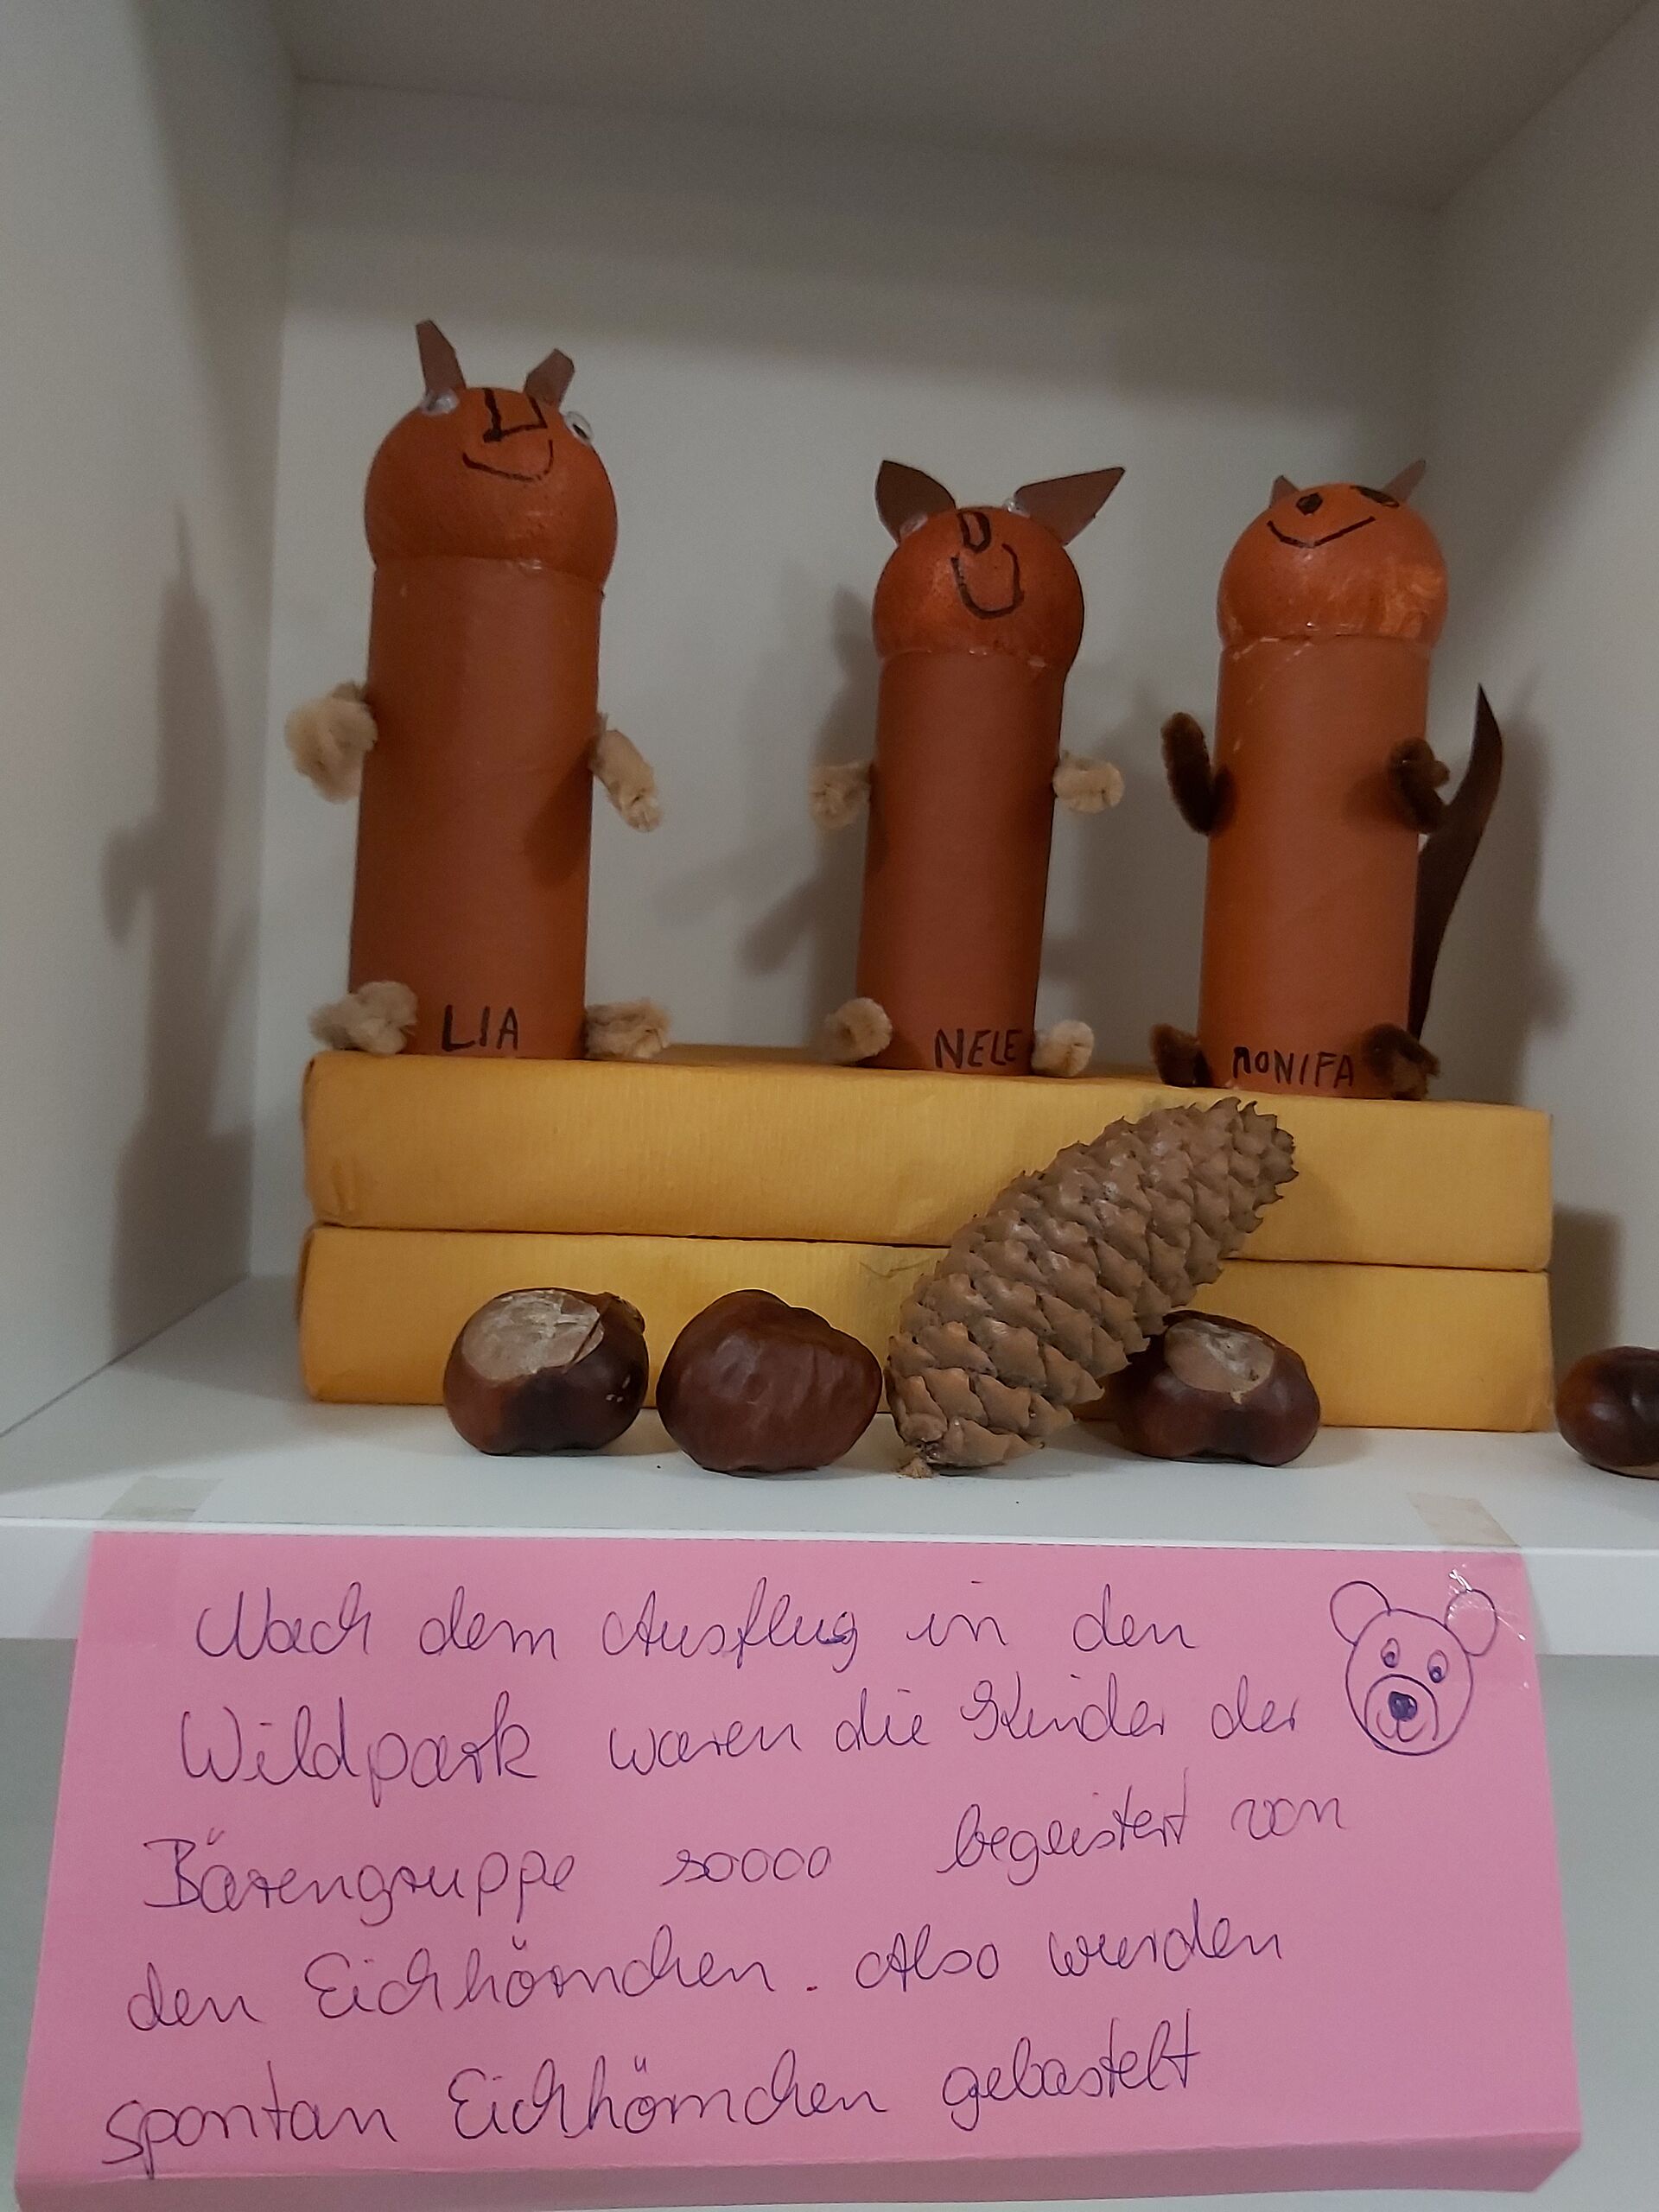 LIA
NELE
MONIFA
Nach dem Ausflug in den
Wildpark waren die Kinder der
Bärengruppe soooo begeistert von
den Eichhörnchen. Also wurden
spontan Eichhörnchen gebastelt